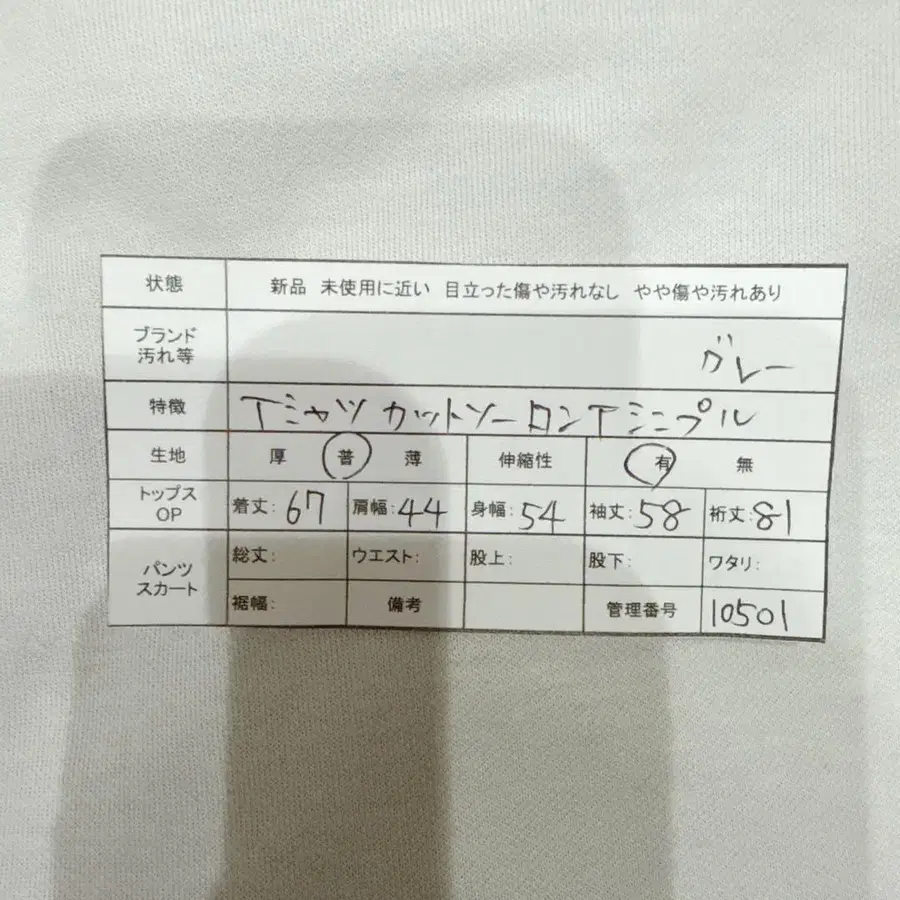 状態 新品 未使用に近い 目立った傷や汚れなし やや傷や汚れあり
ブランド
汚れ等 グレー
特徴 Tシャツ カットソー ロンT シンプル
生地 厚 普 薄 伸縮性 有 無
トップス
OP 着丈: 67 肩幅: 44 身幅: 54 袖丈: 58 裄丈: 81
パンツ
スカート 総丈: ウエスト: 股上: 股下: ワタリ:
裾幅: 備考 管理番号 10501